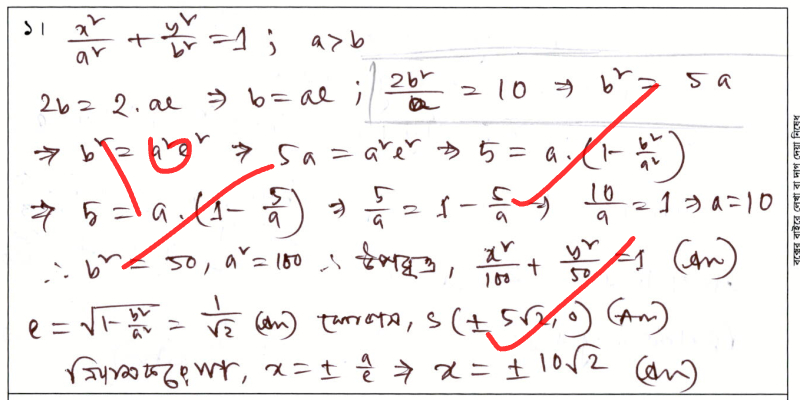 ১। x²/a² + y²/b² = 1 ; a > b
2b = 2.ae ⇒ b = ae ; 2b²/a = 10 ⇒ b² = 5a
⇒ b² = a²e² ⇒ 5a = a²e² ⇒ 5 = a.(1 - b²/a²)
⇒ 5 = a.(1 - 5/a) ⇒ 5/a = 1 - 5/a ⇒ 10/a = 1 ⇒ a = 10
∴ b² = 50, a² = 100 ∴ উপবৃত্ত, x²/100 + y²/50 = 1 (An)
e = √(1 - b²/a²) = 1/√2 (An) ফোকাস, S (± 5√2, 0) (An)
x = ± a/e ⇒ x = ± 10√2 (An)
বক্সের বাইরে লেখা বা দাগ দেয়া নিষেধ